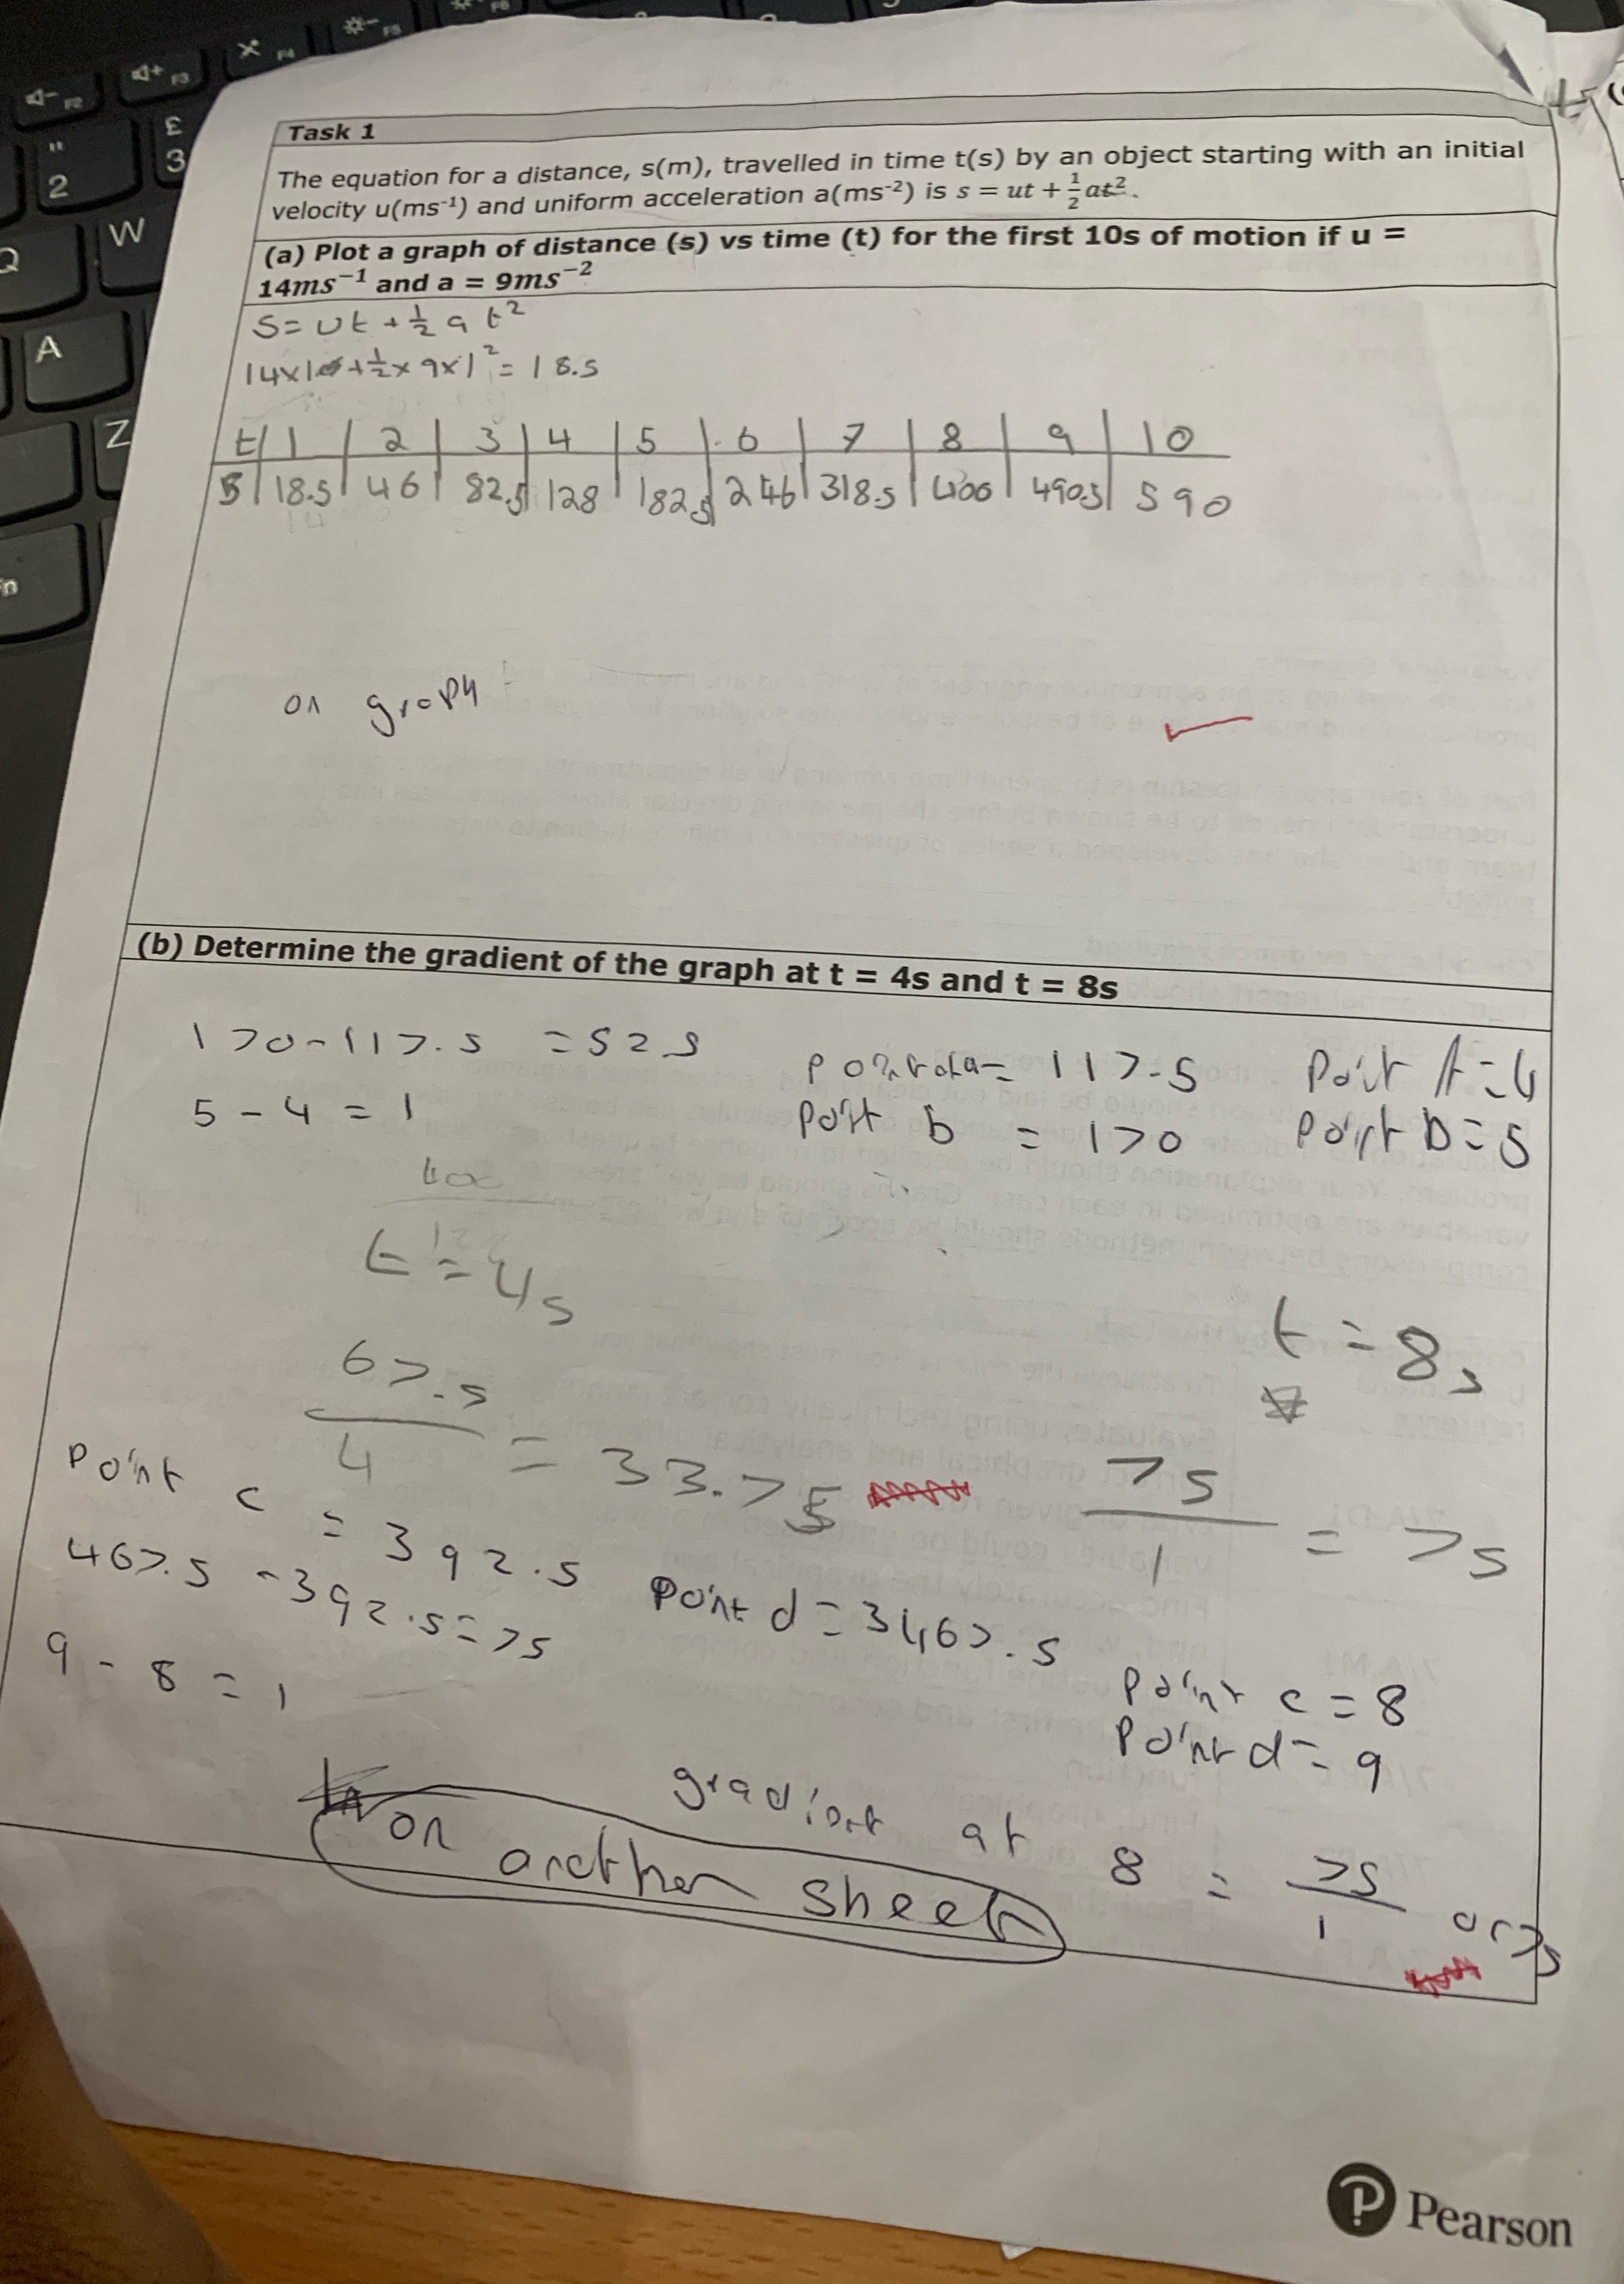 Task 1
The equation for a distance, s(m), travelled in time t(s) by an object starting with an initial
velocity u(ms⁻¹) and uniform acceleration a(ms⁻²) is s = ut + ½at².
(a) Plot a graph of distance (s) vs time (t) for the first 10s of motion if u =
14ms⁻¹ and a = 9ms⁻²
S = ut + ½ a t²
14×1 + ½ × 9×1² = 18.5
t | 1 | 2 | 3 | 4 | 5 | 6 | 7 | 8 | 9 | 10
S | 18.5 | 46 | 82.5 | 128 | 182.5 | 246 | 318.5 | 400 | 490.5 | 590
on graph
(b) Determine the gradient of the graph at t = 4s and t = 8s
170 - 117.5 = 52.5
Point a = 117.5
Point A = 4
5 - 4 = 1
Point b = 170
Point b = 5
400
t = 4s
t = 8s
67.5
4
= 33.75
75
1
= 75
Point c = 392.5
467.5 - 392.5 = 75
Point d = 467.5
9 - 8 = 1
Point c = 8
Point d = 9
gradient at 8 = 75/1 or 75
on another sheet
Pearson
2
3
£
"
Q
W
A
Z
F2
F3
F4
F5
F6